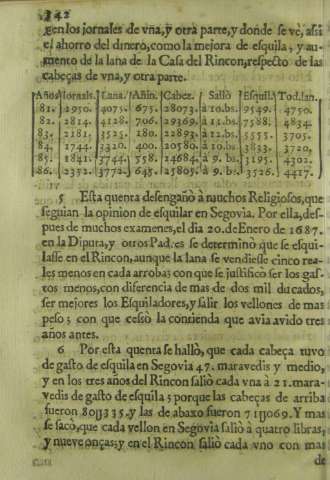 342
gen los jornales de vña, y otra parte, y donde se vè, assi
el ahorro del dinero, como la mejora de esquila, y au-
mento de la lana de la Casa del Rincon, respecto de las
cabeças de vna, y otra parte.
Años Iornals. Lana. Añin. Cabez. Sallò Esquila Tod.lan.
81. 2950. 4075. 675. 28073. à 10.bs. 9549. 4750.
82. 2814. 4128. 706. 29369. à 11.bs. 7588. 4834.
83. 2181. 3525. 180. 22893. à 12.bs. 5555. 3705.
84. 1744. 3320. 400. 20580. à 10.bs. 3833. 3720.
85. 1841. 3744. 558. 14684. à 9.bs. 3195. 4302.
86. 2352. 3772. 645. 25805. à 9.bs. 3526. 4417.
5 Esta quenta desengañò à muchos Religiosos, que
seguian la opinion de esquilar en Segovia. Por ella, des-
pues de muchos examenes, el dia 20. de Enero de 1687.
en la Dipura, y otros Pad.es se determinò que se esqui-
lasse en el Rincon, aunque la lana se vendiesse cinco rea-
les menos en cada arroba; con que se justificò ser los gas-
tos menos, con diferencia de mas de dos mil ducados,
ser mejores los Esquiladores, y salir los vellones de mas
peso; con que cessò la contienda que avia avido tres
años antes.
6 Por esta quenta se hallò, que cada cabeça tuvo
de gasto de esquila en Segovia 47. maravedis y medio,
y en los tres años del Rincon saliò cada vna à 21. mara-
vedis de gasto de esquila; porque las cabeças de arriba
fueron 80U335. y las de abaxo fueron 71U069. Y mas
se sacò, que cada vellon en Segovia saliò à quatro libras,
y nueve onças; y en el Rincon saliò cada vno con mas
de